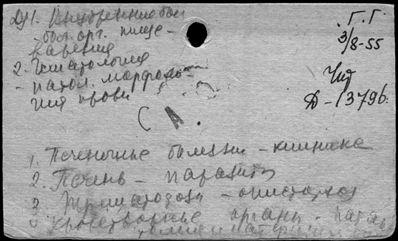 Д1. Внутренние бол
- бол. орг. пище-
варения
2. Гематология
- патол. морфоло-
гия крови
Г. Г.
3/8-55
Чит
Д-13796
(А.
1. Печеночные болезни - клиника
2. Печень - паразиты
3 Трематозы - описторхоз
Кроветворные органы - патол